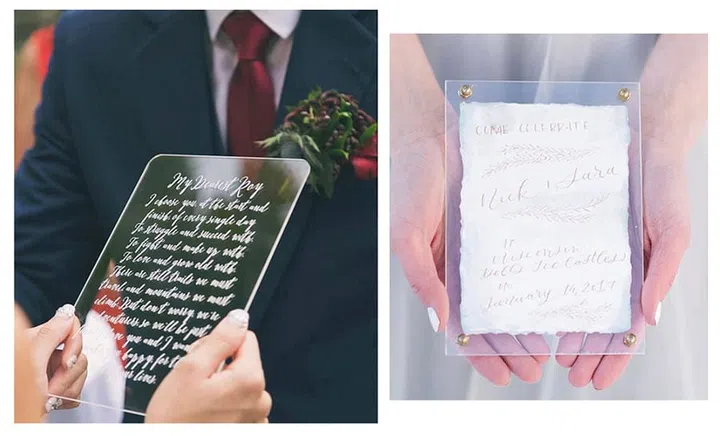 My Dearest Roy
I choose you at the start and
finish of every single day
To struggle and succeed with.
To fight and make up with.
To love and grow old with.
There are still trails we must
travel and mountains we must
climb. But don't worry, we're
so we'll be just
you and I
happy, for
lives.
COME CELEBRATE
Nick & Sara
AT
Wisconsin
Dells Ice Castles
ON
January 14, 2017